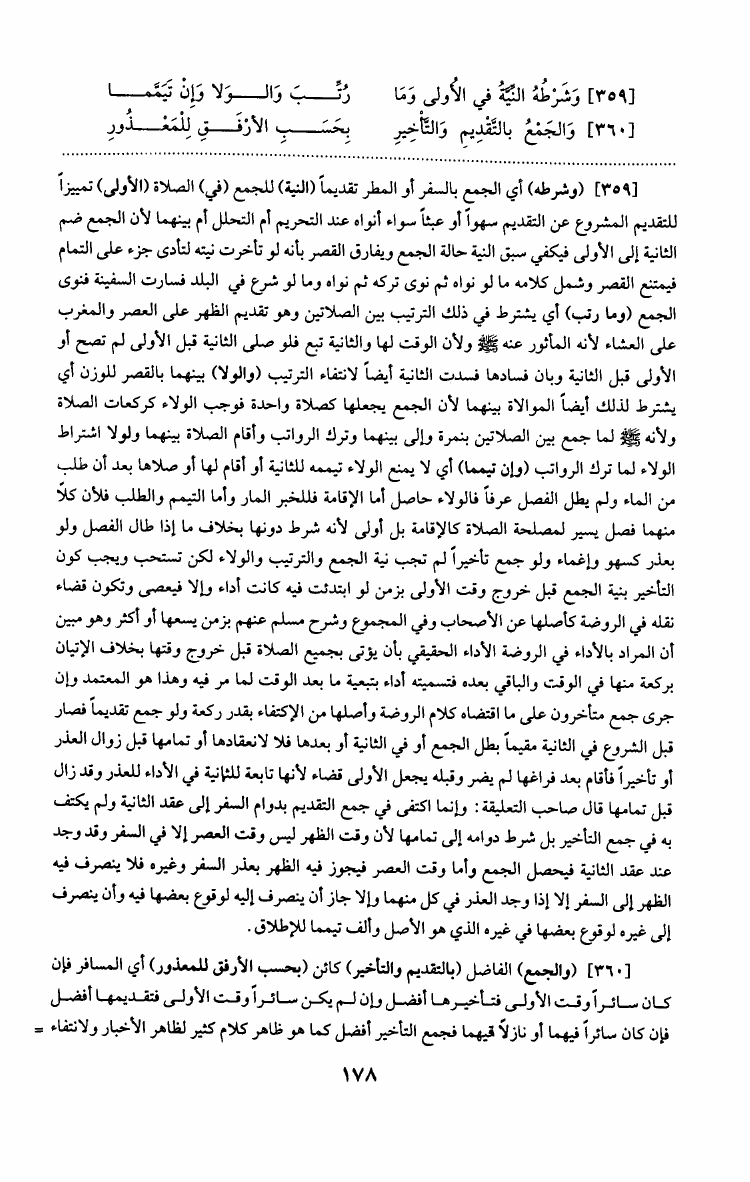 [٣٥٩] وَشَرْطُهُ النِّيَّةُ في الأُولى وَمَا رُتِّـــبَ وَالـــوَلا وَإِنْ تَيَمَّمـــا
[٣٦٠] وَالجَمْعُ بالتَّقْدِيمِ وَالتَّأْخِيرِ بِحَسَــبِ الأَرْفَــقِ لِلْمَعْــذُورِ
[٣٥٩] (وشرطه) أي الجمع بالسفر أو المطر تقديماً (النية) للجمع (في) الصلاة (الأولى) تمييزاً
للتقديم المشروع عن التقديم سهواً أو عبثاً سواء أنواه عند التحريم أم التحلل أم بينهما لأن الجمع ضم
الثانية إلى الأولى فيكفي سبق النية حالة الجمع ويفارق القصر بأنه لو تأخرت نيته لتأدى جزء على التمام
فيمتنع القصر وشمل كلامه ما لو نواه ثم نوى تركه ثم نواه وما لو شرع في البلد فسارت السفينة فنوى
الجمع (وما رتب) أي يشترط في ذلك الترتيب بين الصلاتين وهو تقديم الظهر على العصر والمغرب
على العشاء لأنه المأثور عنه ﷺ ولأن الوقت لها والثانية تبع فلو صلى الثانية قبل الأولى لم تصح أو
الأولى قبل الثانية وبان فسادها فسدت الثانية أيضاً لانتفاء الترتيب (والولا) بينهما بالقصر للوزن أي
يشترط لذلك أيضاً الموالاة بينهما لأن الجمع يجعلها كصلاة واحدة فوجب الولاء كركعات الصلاة
ولأنه ﷺ لما جمع بين الصلاتين بنمرة وإلى بينهما وترك الرواتب وأقام الصلاة بينهما ولولا اشتراط
الولاء لما ترك الرواتب (وإن تيمما) أي لا يمنع الولاء تيممه للثانية أو أقام لها أو صلاها بعد أن طلب
من الماء ولم يطل الفصل عرفاً فالولاء حاصل أما الإقامة فللخبر المار وأما التيمم والطلب فلأن كلاً
منهما فصل يسير لمصلحة الصلاة كالإقامة بل أولى لأنه شرط دونها بخلاف ما إذا طال الفصل ولو
بعذر كسهو وإغماء ولو جمع تأخيراً لم تجب نية الجمع والترتيب والولاء لكن تستحب ويجب كون
التأخير بنية الجمع قبل خروج وقت الأولى بزمن لو ابتدئت فيه كانت أداء وإلا فيعصى وتكون قضاء
نقله في الروضة كأصلها عن الأصحاب وفي المجموع وشرح مسلم عنهم بزمن يسعها أو أكثر وهو مبين
أن المراد بالأداء في الروضة الأداء الحقيقي بأن يؤتى بجميع الصلاة قبل خروج وقتها بخلاف الإتيان
بركعة منها في الوقت والباقي بعده فتسميته أداء بتبعية ما بعد الوقت لما مر فيه وهذا هو المعتمد وإن
جرى جمع متأخرون على ما اقتضاه كلام الروضة وأصلها من الإكتفاء بقدر ركعة ولو جمع تقديماً فصار
قبل الشروع في الثانية مقيماً بطل الجمع أو في الثانية أو بعدها فلا لانعقادها أو تمامها قبل زوال العذر
أو تأخيراً فأقام بعد فراغها لم يضر وقبله يجعل الأولى قضاء لأنها تابعة للثانية في الأداء للعذر وقد زال
قبل تمامها قال صاحب التعليقة: وإنما اكتفى في جمع التقديم بدوام السفر إلى عقد الثانية ولم يكتف
به في جمع التأخير بل شرط دوامه إلى تمامها لأن وقت الظهر ليس وقت العصر إلا في السفر وقد وجد
عند عقد الثانية فيحصل الجمع وأما وقت العصر فيجوز فيه الظهر بعذر السفر وغيره فلا ينصرف فيه
الظهر إلى السفر إلا إذا وجد العذر في كل منهما وإلا جاز أن ينصرف إليه لوقوع بعضها فيه وأن ينصرف
إلى غيره لوقوع بعضها في غيره الذي هو الأصل وألف تيمما للإطلاق.
[٣٦٠] (والجمع) الفاضل (بالتقديم والتأخير) كائن (بحسب الأرفق للمعذور) أي المسافر فإن
كان سائراً وقت الأولى فتأخيرها أفضل وإن لم يكن سائراً وقت الأولى فتقديمها أفضل
فإن كان سائراً فيهما أو نازلاً فيهما فجمع التأخير أفضل كما هو ظاهر كلام كثير لظاهر الأخبار ولانتفاء =
١٧٨